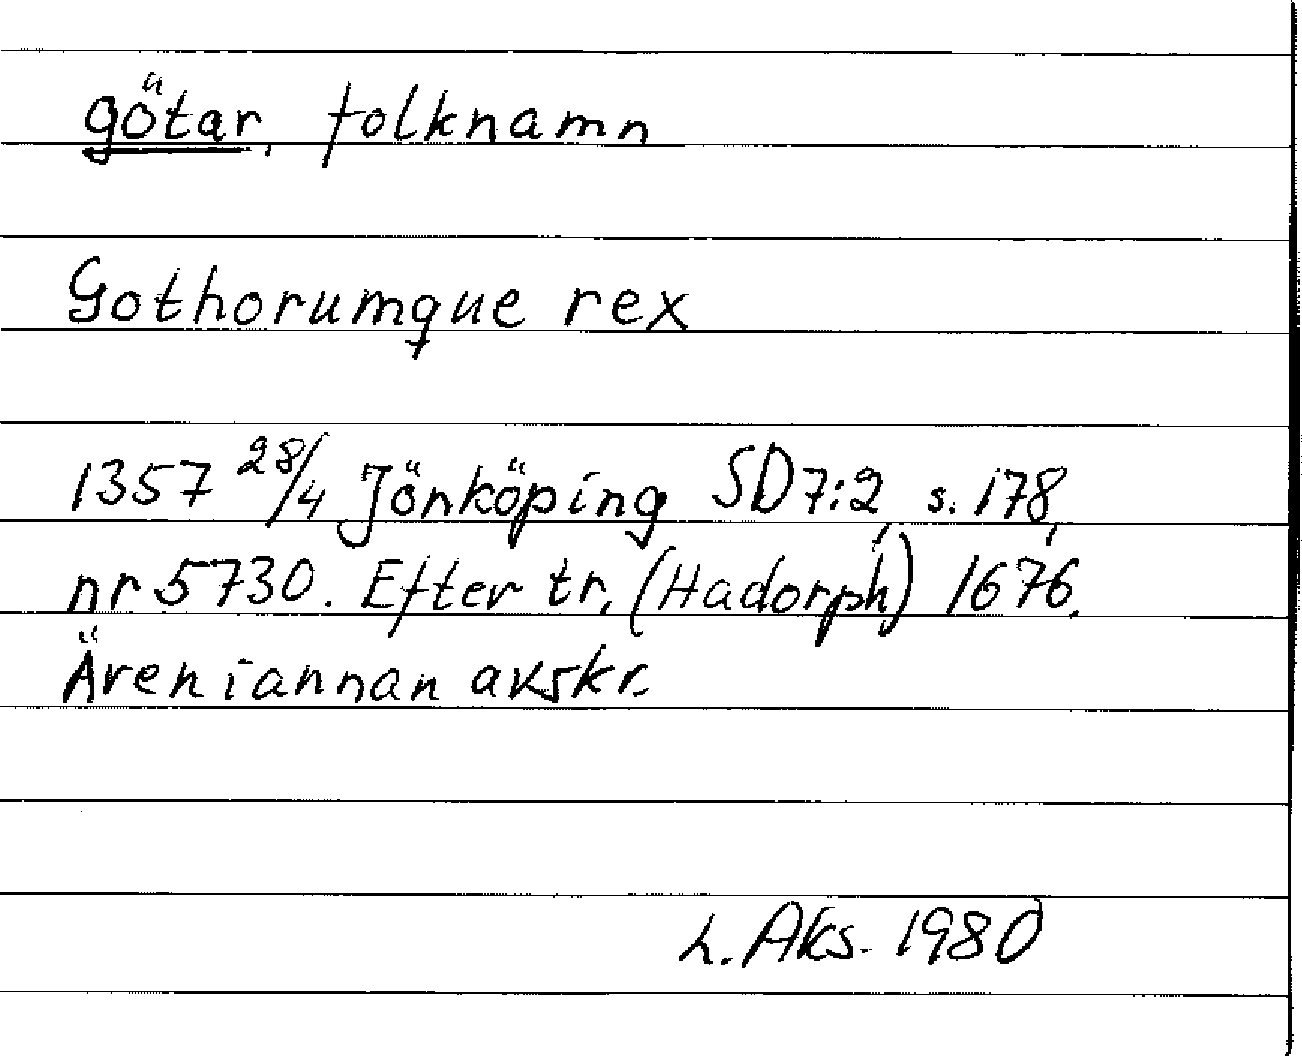 götar, folknamn
Gothorumque rex
1357 28/4 Jönköping SD7:2, s. 178,
nr 5730. Efter tr. (Hadorph) 1676.
Även i annan avskr.
L. Aks. 1980